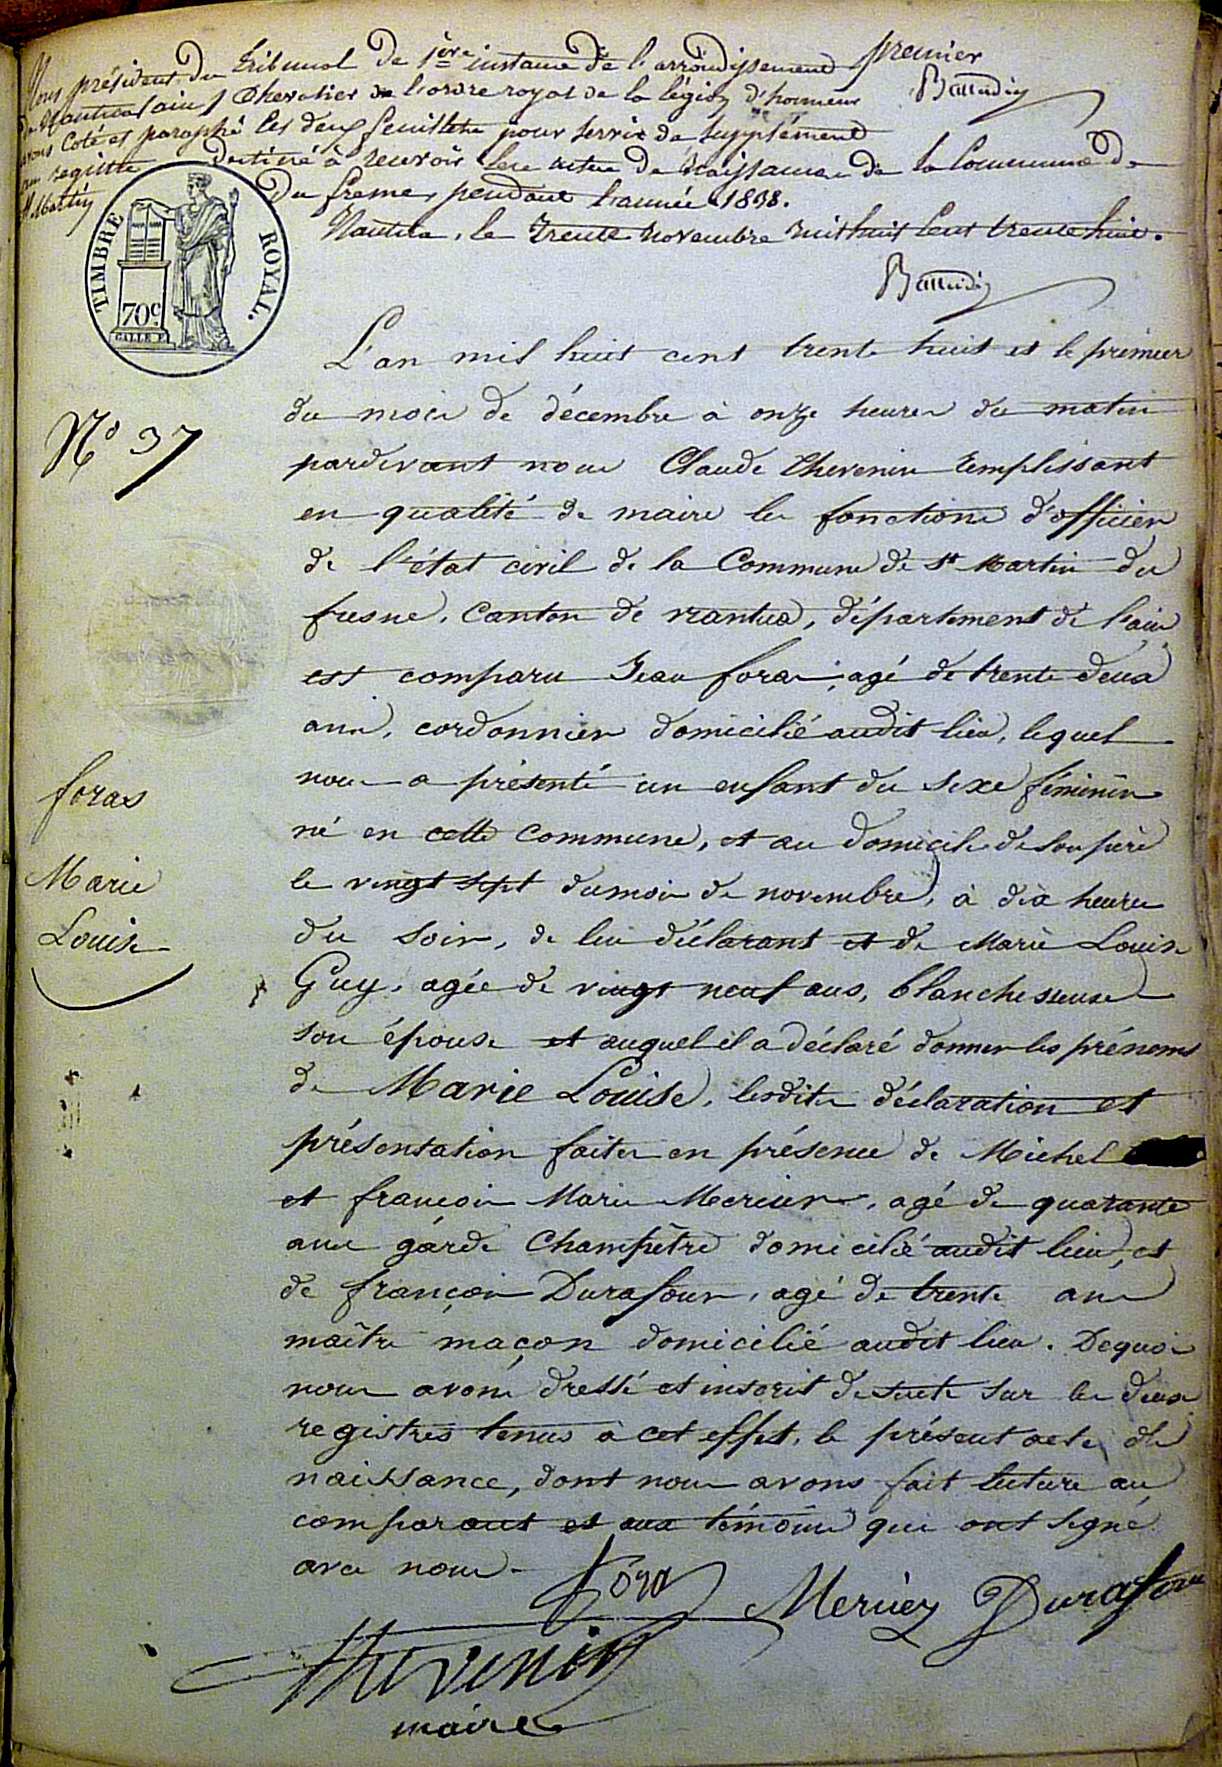 Nous président du tribunal de 1ère instance de l'arrondissement premier
de Nantua (ain) Chevalier de l'ordre royal de la légion d'honneur
avons coté et paraphé les deux feuillets pour servir de supplément
au registre destiné à recevoir les actes de naissance de la Commune de
St Martin du fresne, pendant l'année 1838.
Nantua, le trente novembre mil huit cent trente huit.
TIMBRE ROYAL.
70c.
L'an mil huit cent trente huit et le premier
du mois de décembre à onze heures du matin
pardevant nous Claude Thevenin remplissant
en qualité de maire les fonctions d'officier
de l'état civil de la Commune de St Martin du
fresne, canton de nantua, département de l'ain
est comparu Jean foras, agé de trente deux
ans, cordonnier domicilié audit lieu, lequel
nous a présenté un enfant du sexe féminin
né en cette commune, et au domicile de son père
le vingt sept du mois de novembre, à dix heures
du soir, de lui déclarant et de Marie Louise
Guy, agée de vingt neuf ans, blanchisseuse
son épouse et auquel il a déclaré donner les prénoms
de Marie Louise, lesdites déclaration et
présentation faites en présence de Michel
et françois Marie Mercier, agé de quarante
ans garde champêtre domicilié audit lieu, et
de françois Durafour, agé de trente ans
maître maçon domicilié audit lieu. De quoi
nous avons dressé et inscrit de suite sur les deux
registres tenus à cet effet, le présent acte de
naissance, dont nous avons fait lecture au
comparant et aux témoins qui ont signé
avec nous.
N° 37
foras
Marie
Louise
fora Mercier Durafour
thevenin
maire